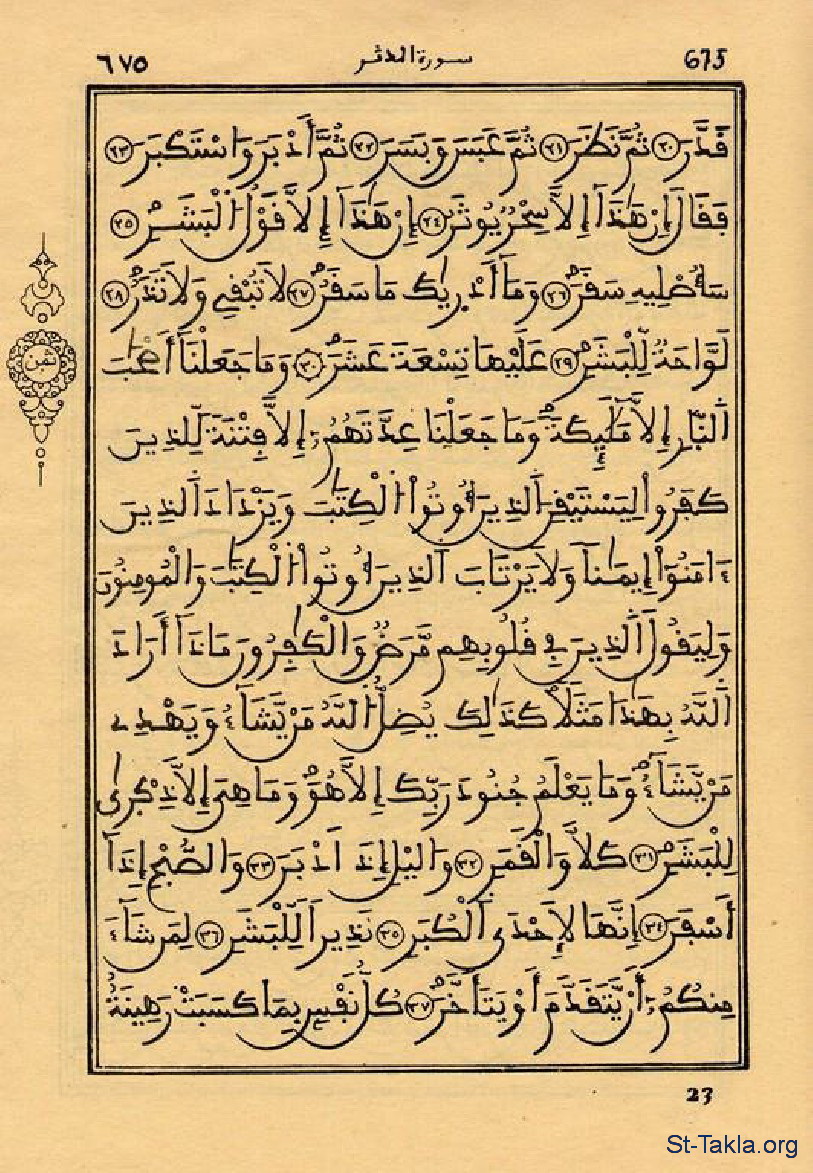 675 سورة المدثر ٦٧٥
قَدَّرَ ٢٠ ثُمَّ نَظَرَ ٢١ ثُمَّ عَبَسَ وَبَسَرَ ٢٢ ثُمَّ أَدْبَرَ وَاسْتَكْبَرَ ٢٣
فَقَالَ إِنْ هَٰذَآ إِلَّا سِحْرٌ يُوثَرُ ٢٤ إِنْ هَٰذَآ إِلَّا قَوْلُ الْبَشَرِ ٢٥
سَأُصْلِيهِ سَقَرَ ٢٦ وَمَآ أَدْرٜيٰكَ مَا سَقَرُ ٢٧ لَا تُبْقِي وَلَا تَذَرُ ٢٨
لَوَّاحَةٌ لِّلْبَشَرِ ٢٩ عَلَيْهَا تِسْعَةَ عَشَرَ ٣٠ وَمَا جَعَلْنَآ أَصْحَٰبَ
اَ۬لنّ۪ارِ إِلَّا مَلَٰٓئِكَةً وَمَا جَعَلْنَا عِدَّتَهُمُۥٓ إِلَّا فِتْنَةً لِّلذِينَ
كَفَرُواْ لِيَسْتَيْقِنَ اَ۬لذِينَ أُوتُواْ اُ۬لْكِتَٰبَ وَيَزْدَادَ اَ۬لذِينَ
ءَامَنُوٓاْ إِيمَٰناً وَلَا يَرْتَابَ اَ۬لذِينَ أُوتُواْ اُ۬لْكِتَٰبَ وَالْمُومِنُونَ
وَلِيَقُولَ اَ۬لذِينَ فِي قُلُوبِهِم مَّرَضٌ وَالْكَٰفِرُونَ مَاذَآ أَرَادَ
اَ۬للَّهُ بِهَٰذَا مَثَلاً كَذَٰلِكَ يُضِلُّ اُ۬للَّهُ مَنْ يَّشَآءُ وَيَهْدِي
مَنْ يَّشَآءُ وَمَا يَعْلَمُ جُنُودَ رَبِّكَ إِلَّا هُوَ وَمَا هِيَ إِلَّا ذِكْرٜيٰ
لِلْبَشَرِ ٣١ كَلَّا وَالْقَمَرِ ٣٢ وَاليْلِ إِذَ اَدْبَرَ ٣٣ وَالصُّبْحِ إِذَآ
أَسْفَرَ ٣٤ إِنَّهَا لَإِحْدَى اَ۬لْكُبَرِ ٣٥ نَذِيراً لِّلْبَشَرِ ٣٦ لِمَن شَآءَ
مِنكُمُۥٓ أَنْ يَّتَقَدَّمَ أَوْ يَتَأَخَّرَ ٣٧ كُلُّ نَفْسٍ بِمَا كَسَبَتْ رَهِينَةٌ
ثمن
23
St-Takla.org